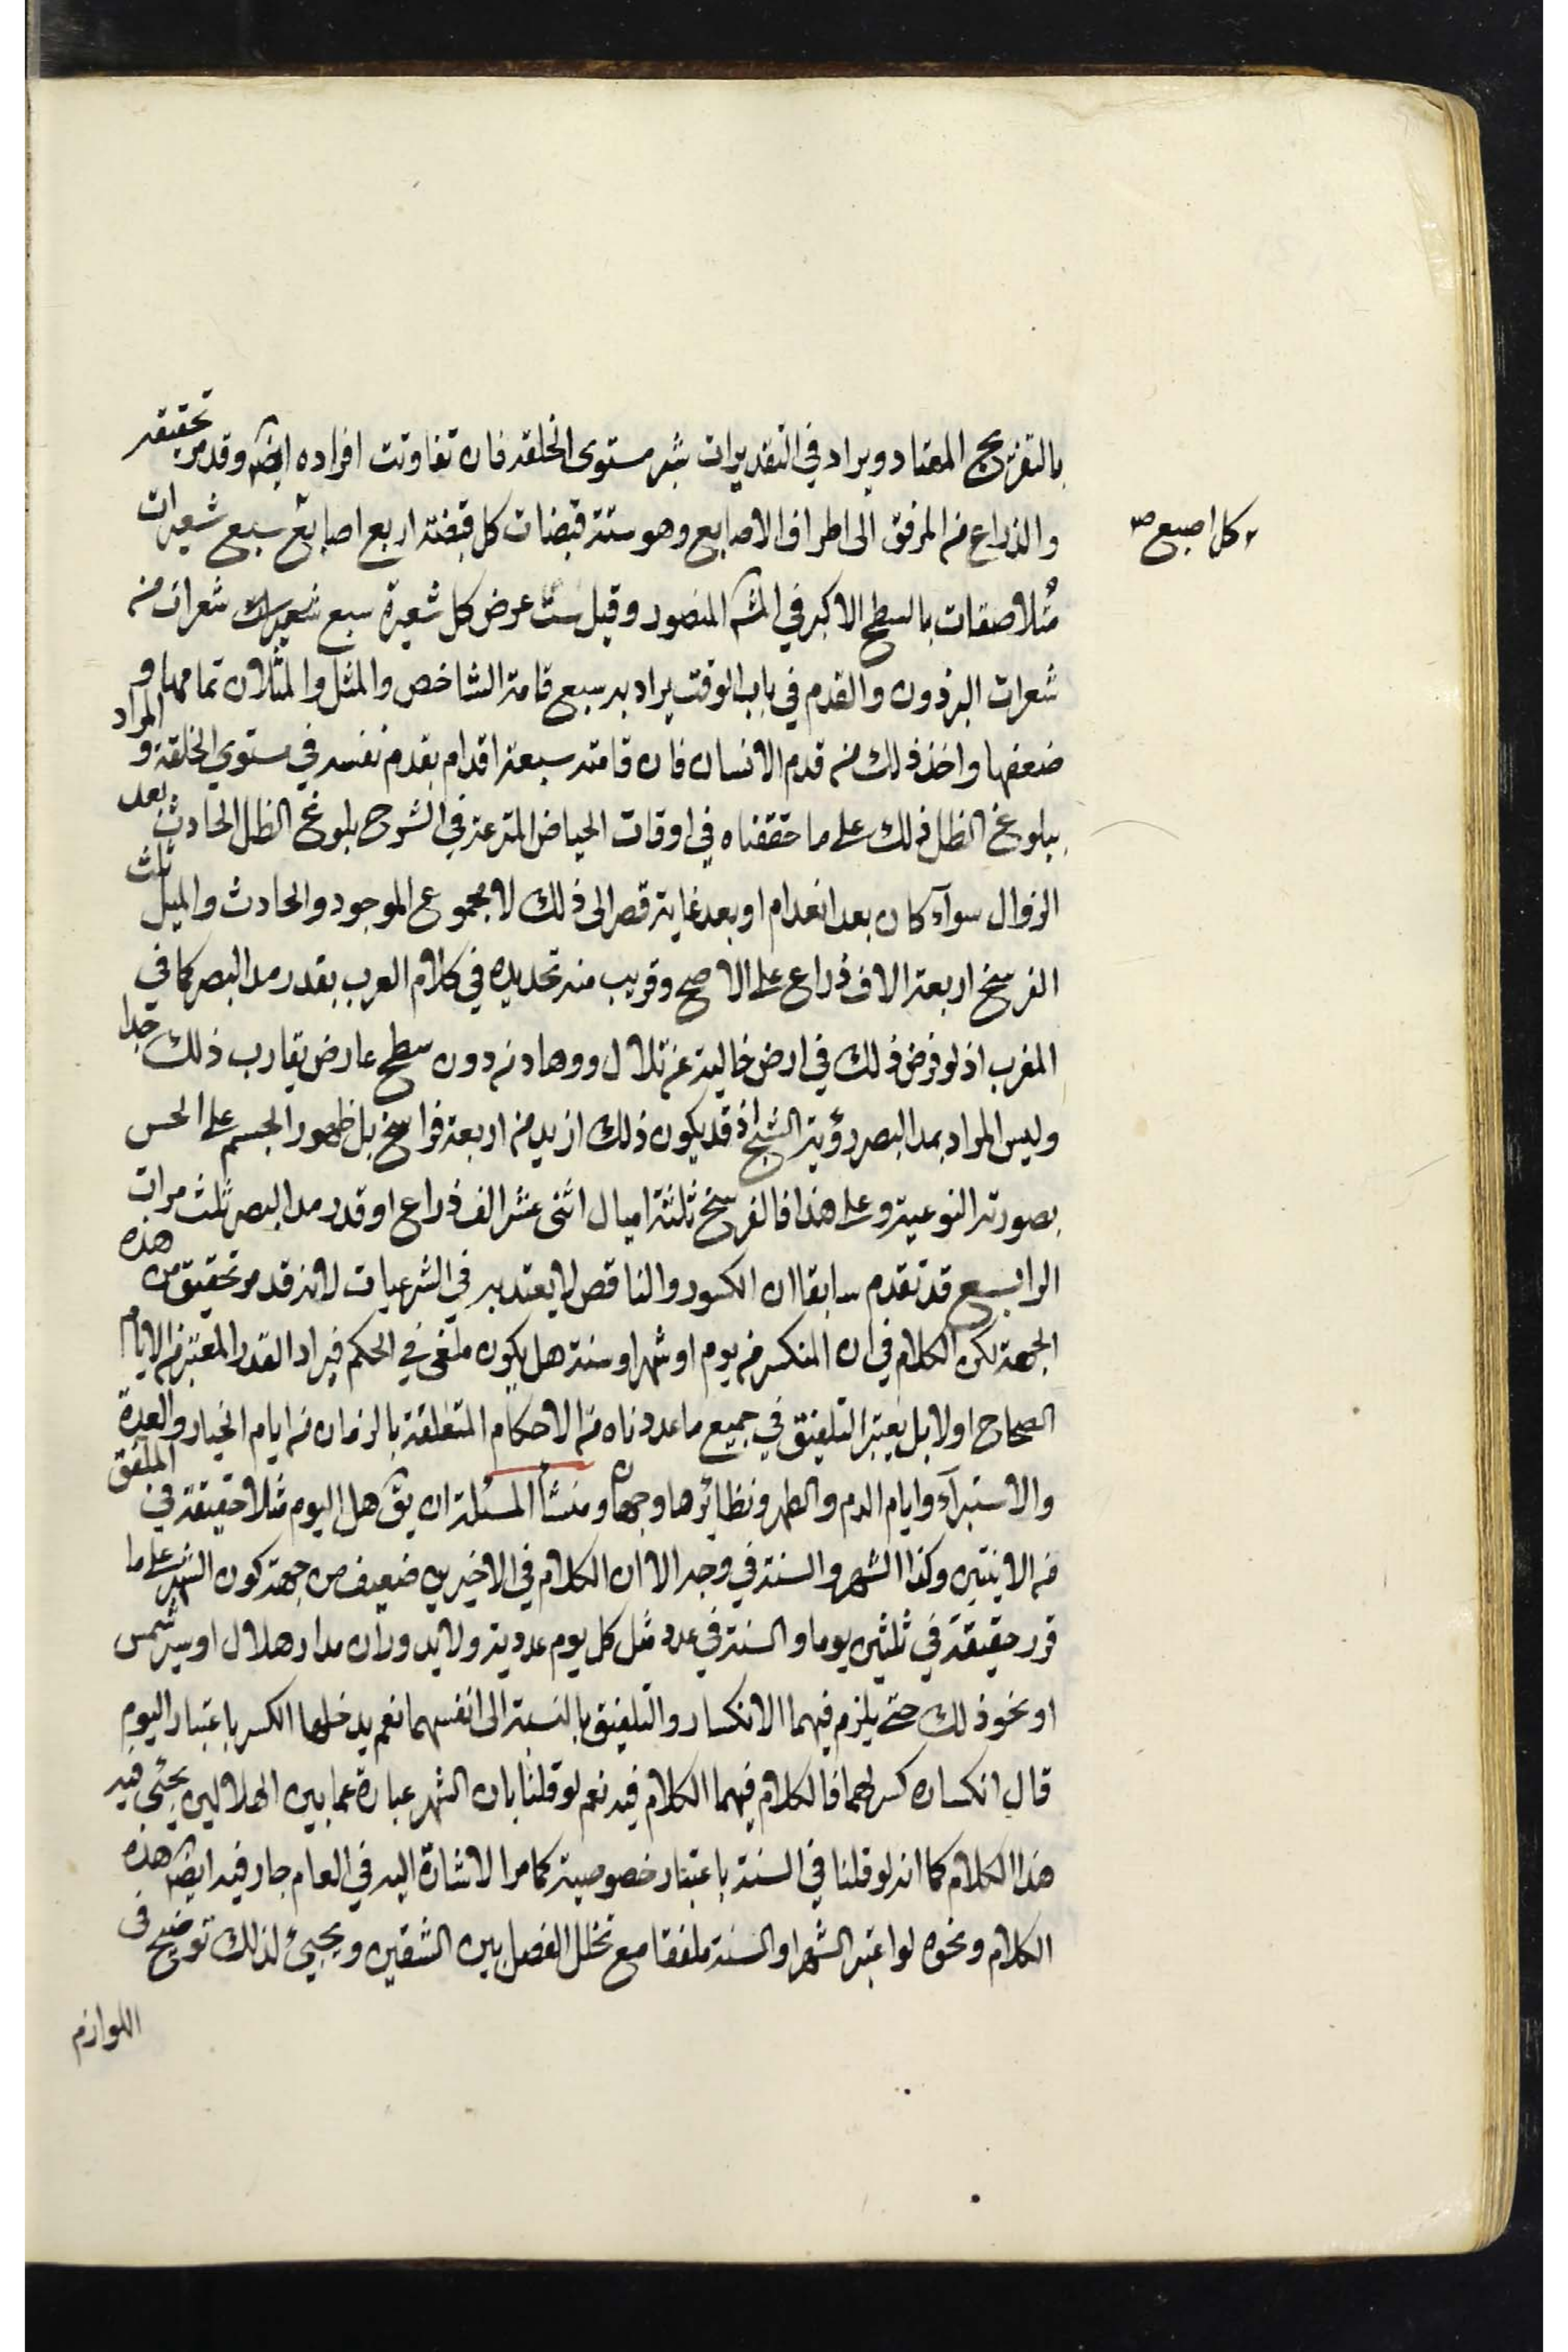 بالتفريج المعتاد ويراد في التقديرات شبر مستوى الخلقة فان تفاوتت افراده ايضا وقد مر تحقيقه
والذراع من المرفق الى اطراف الاصابع وهو ستة قبضات كل قبضة اربع اصابع سبع شعيرات
كل اصبع صح
متلاصقات بالسطح الاكبر في المش المنصور وقيل ست عرض كل شعيرة سبع شعرات من
شعرات البرذون والقدم في باب الوقت يراد به سبع قامة الشاخص والمثل والمثلان تمامها و
ضعفها واخذ ذلك من قدم الانسان فان قامته سبعة اقدام بقدم نفسه في مستوي الخلقة و المراد
ببلوغ الظل ذلك على ما حققناه في اوقات الحياض المترعة في الشرح بلوغ الظل الحادث بعد
الزوال سوآء كان بعد انعدام او بعد غاية قصر الى ذلك لا مجموع الموجود والحادث والميل ثلث
الفرسخ اربعة الاف ذراع على الاصح وقريب منه تحديده في كلام العرب بقدر مد البصر كما في
المغرب اذ لو فرض ذلك في ارض خالية عن تلال ووهاد من دون سطح عارض يقارب ذلك جدا
وليس المراد بمد البصر رؤية الشبح اذ قد يكون ذلك ازيد من اربعة فراسخ بل ظهور الجسم على الحس
بصورته النوعية وعلى هذا فالفرسخ ثلثة اميال اثنى عشر الف ذراع او قدر مد البصر ثلث مرات
الرابع قد تقدم سابقا ان الكسور والناقص لا يعتد به في الشرعيات لانه قد مر تحقيق من هذه
الجهة لكن الكلام في ان المنكسر من يوم او شهر او سنة هل يكون ملغى في الحكم فيراد القدر المعتبر من الايام
الصحاح اولا بل يعتبر التلفيق في جميع ما عددناه من الاحكام المتعلقة بالزمان من ايام الخيار والعدة
والاستبرآء وايام الدم والطهر ونظائرها وجهان ومنشأ المسئلة ان يق هل اليوم مثلا حقيقة في الملفق
من الاثنين وكذا الشهر والسنة في وجه الا ان الكلام في الاخيرين ضعيف من جهة كون الشهر على ما
قرر حقيقة في ثلثين يوما والسنة في عدد مثل كل يوم عددية ولا يدوران مدار هلال او سير شمس
او نحو ذلك حتى يلزم فيهما الانكسار والتلفيق بالنسبة الى انفسهما نعم يدخلها الكسر باعتبار اليوم
قال انكساره كسر لهما فالكلام فيهما الكلام فيه نعم لو قلنا بان الشهر عبارة عما بين الهلالين يجئ فيه
هذا الكلام كما انه لو قلنا في السنة باعتبار خصوصية كما مر الاشارة اليه في العام جار فيه ايضا هذه
الكلام ونحوه لو اعتبر الشهر او السنة ملفقا مع تخلل الفصل بين الشقين ويجيئ لذلك توضيح في
اللوازم